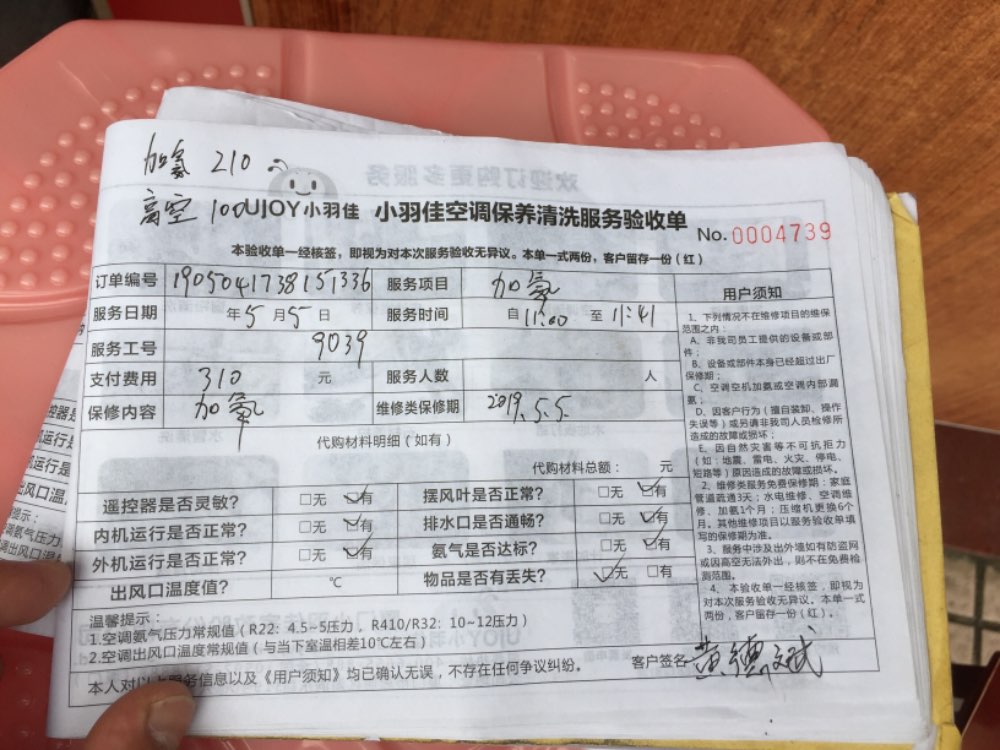 加氨 210
高空 100
UJOY小羽佳 小羽佳空调保养清洗服务验收单
No. 0004739
本验收单一经核签，即视为对本次服务验收无异议。本单一式两份，客户留存一份（红）
订单编号 190504173815336 服务项目 加氨
服务日期 年5月5日 服务时间 自11:00至11:41
服务工号 9039
支付费用 310 元 服务人数 人
保修内容 加氨 维修类保修期 2019.5.5.
代购材料明细（如有）
代购材料总额： 元
遥控器是否灵敏？ □无 ☑有 摆风叶是否正常？ □无 ☑有
内机运行是否正常？ □无 ☑有 排水口是否通畅？ □无 ☑有
外机运行是否正常？ □无 ☑有 氨气是否达标？ □无 ☑有
出风口温度值？ ℃ 物品是否有丢失？ ☑无 □有
温馨提示：
1.空调氨气压力常规值（R22：4.5~5压力，R410/R32：10~12压力）
2.空调出风口温度常规值（与当下室温相差10℃左右）
本人对以上服务信息以及《用户须知》均已确认无误，不存在任何争议纠纷。
客户签名 黄德斌
用户须知
1、下列情况不在维修项目的维保
范围之内：
A、非我司员工提供的设备或部
件；
B、设备或部件本身已经超过出厂
保修期；
C、空调空机加氨或空调内部漏
氨；
D、因客户行为（擅自装卸、操作
失误等）或另请非我司人员检修所
造成的故障或损坏；
E、因自然灾害等不可抗拒力
（如：地震、雷电、火灾、停电、
短路等）原因造成的故障或损坏。
2、维修类服务免费保修期：家庭
管道疏通3天；水电维修、空调维
修、加氨1个月；压缩机更换6个
月。其他维修项目以服务验收单填
写的保修期为准。
3、服务中涉及出外墙如有防盗网
或因高空无法外出，则不在免费检
测范围。
4、本验收单一经核签，即视为
对本次服务验收无异议。本单一式
两份，客户留存一份（红）。